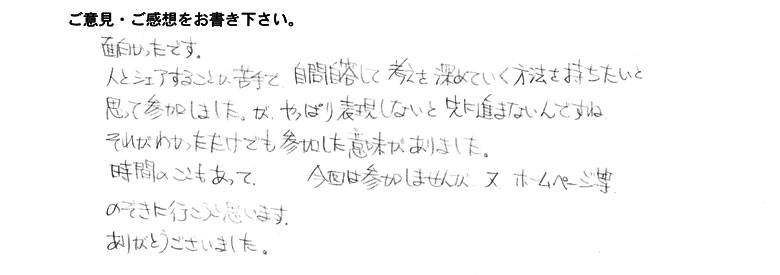 ご意見・ご感想をお書き下さい。
面白かったです。
人とシェアすることが苦手で、自問自答して考えを深めていく方法を持ちたいと
思って参加しました。が、やっぱり表現しないと先に進まないんですね
それがわかっただけでも参加した意味がありました。
時間のこともあって、 今回は参加しませんが、又 ホームページ等
のぞきに行こうと思います。
ありがとうございました。